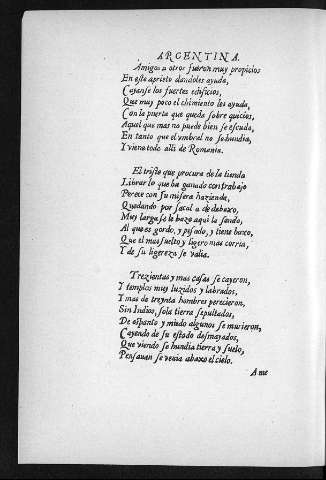 ARGENTINA.
Amigos a otros fueron muy propicios
En este aprieto dandoles ayuda,
Cayanse los fuertes edificios,
Que muy poco el chimiento les ayuda,
Con la puerta que queda sobre quicios,
Aquel que mas no puede bien se escuda,
En tanto que el vmbral no se hundia,
Y viene todo alli de Romania.
El triste que procura de la tienda
Librar lo que ha ganado con trabajo
Perece con su misera hazienda,
Quedando por sacalla de debaxo,
Muy larga se le haze aqui la senda,
Al que es gordo, y pesado, y tiene baxo,
Que el mas suelto y ligero mas corria,
Y de su ligereza se valia.
Trezientas y mas casas se cayeron,
Y templos muy luzidos y labrados,
Y mas de treynta hombres perecieron,
Sin Indios, sola tierra sepultados,
De espanto y miedo algunos se murieron,
Cayendo de su estado desmayados,
Que viendo se hundia tierra y suelo,
Pensauan se venia abaxo el cielo.
A me